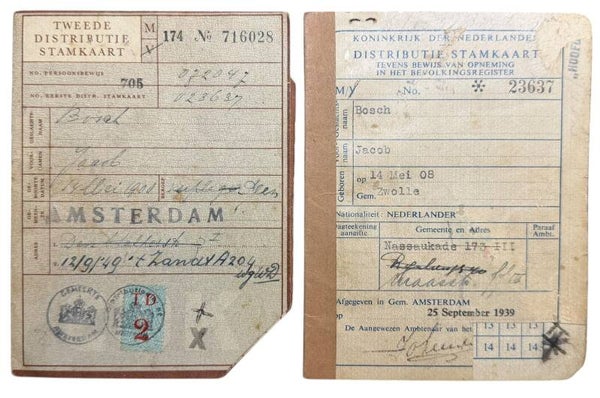 TWEEDE
DISTRIBUTIE
STAMKAART
M
V
174 № 716028
NO. PERSOONSBEWIJS
072047
705
NO. EERSTE DISTR. STAMKAART
023637
GESLACHTS-
NAAM
Bosch
VOOR-
NAMEN
Jacob
GEBOORTE-
DATUM
AMSTERDAM
ADRES
12/9/'49
A 204
GEMEENTE
AMSTERDAM
TD
2
X
KONINKRIJK DER NEDERLANDEN
DISTRIBUTIE STAMKAART
TEVENS BEWIJS VAN OPNEMING
IN HET BEVOLKINGSREGISTER
M/V No. * 23637
Geslachts-
naam
Bosch
Voor-
naam
Jacob
Geboren
op 14 Mei 08
Gem. Zwolle
Nationaliteit: NEDERLANDER
Dagteekening
aangifte
Gemeente en Adres
Paraaf
Ambt.
Nassaukade 173 III
Afgegeven in Gem. AMSTERDAM
op 25 September 1939
De Aangewezen Ambtenaar van het
13 13 13
14 14 14